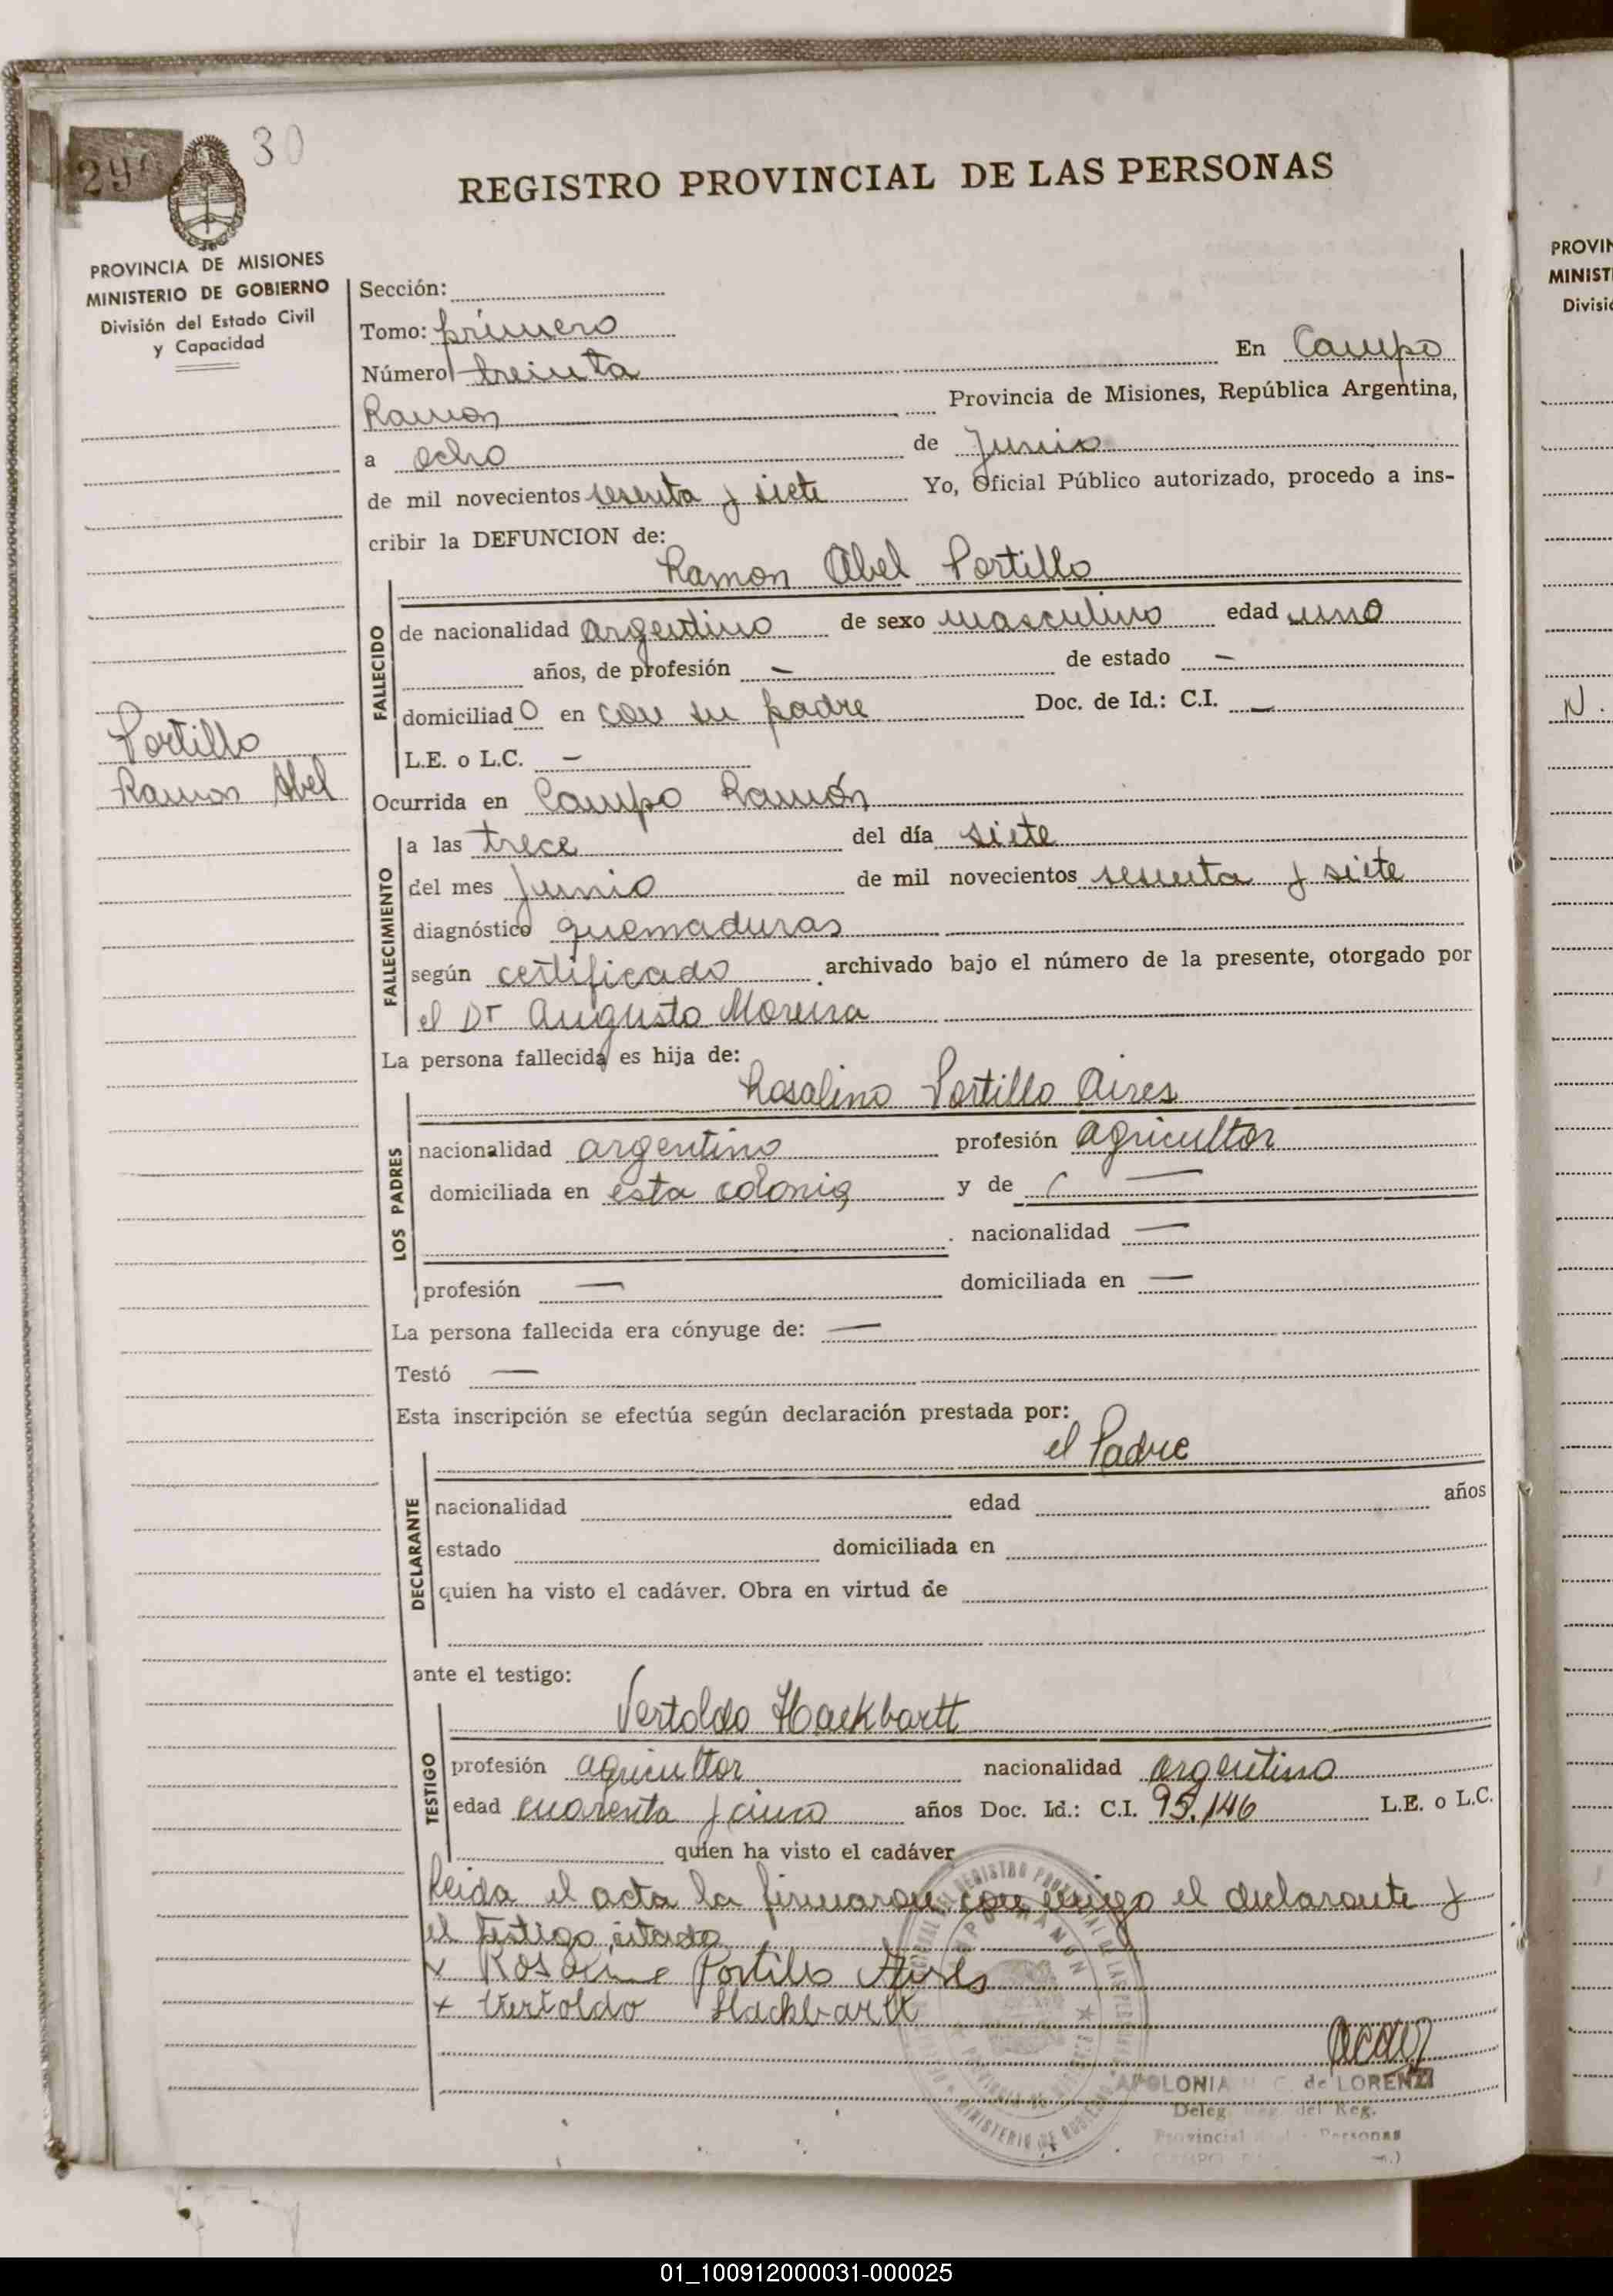 30
REGISTRO PROVINCIAL DE LAS PERSONAS
PROVINCIA DE MISIONES
MINISTERIO DE GOBIERNO
División del Estado Civil
y Capacidad
Portillo
Ramon Abel
Sección:
Tomo: primero
Número treinta En Campo
Ramon Provincia de Misiones, República Argentina,
a ocho de Junio
de mil novecientos sesenta y siete Yo, Oficial Público autorizado, procedo a ins-
cribir la DEFUNCION de:
Ramon Abel Portillo
FALLECIDO
de nacionalidad argentino de sexo masculino edad uno
años, de profesión — de estado —
domiciliado en con su padre Doc. de Id.: C.I. —
L.E. o L.C. —
Ocurrida en Campo Ramón
FALLECIMIENTO
a las trece del día siete
del mes Junio de mil novecientos sesenta y siete
diagnóstico quemaduras
según certificado archivado bajo el número de la presente, otorgado por
el Dr Augusto Moreira
La persona fallecida es hija de:
Rosalino Portillo Aires
LOS PADRES
nacionalidad argentino profesión agricultor
domiciliada en esta colonia y de —
nacionalidad —
profesión — domiciliada en —
La persona fallecida era cónyuge de: —
Testó —
Esta inscripción se efectúa según declaración prestada por:
el Padre
DECLARANTE
nacionalidad edad años
estado domiciliada en
quien ha visto el cadáver. Obra en virtud de
ante el testigo:
Vertoldo Hackbartt
TESTIGO
profesión agricultor nacionalidad argentino
edad cuarenta y cinco años Doc. Id.: C.I. 95.146 L.E. o L.C.
quien ha visto el cadáver
Leida el acta la firmaron con migo el declarante y
el testigo citado
x Portillo Aires
x Vertoldo Hackbartt
APOLONIA C. de LORENZI
Deleg. del Reg.
Provincial Personas
PROVIN
MINIST
Divisi
N.
01_100912000031-000025